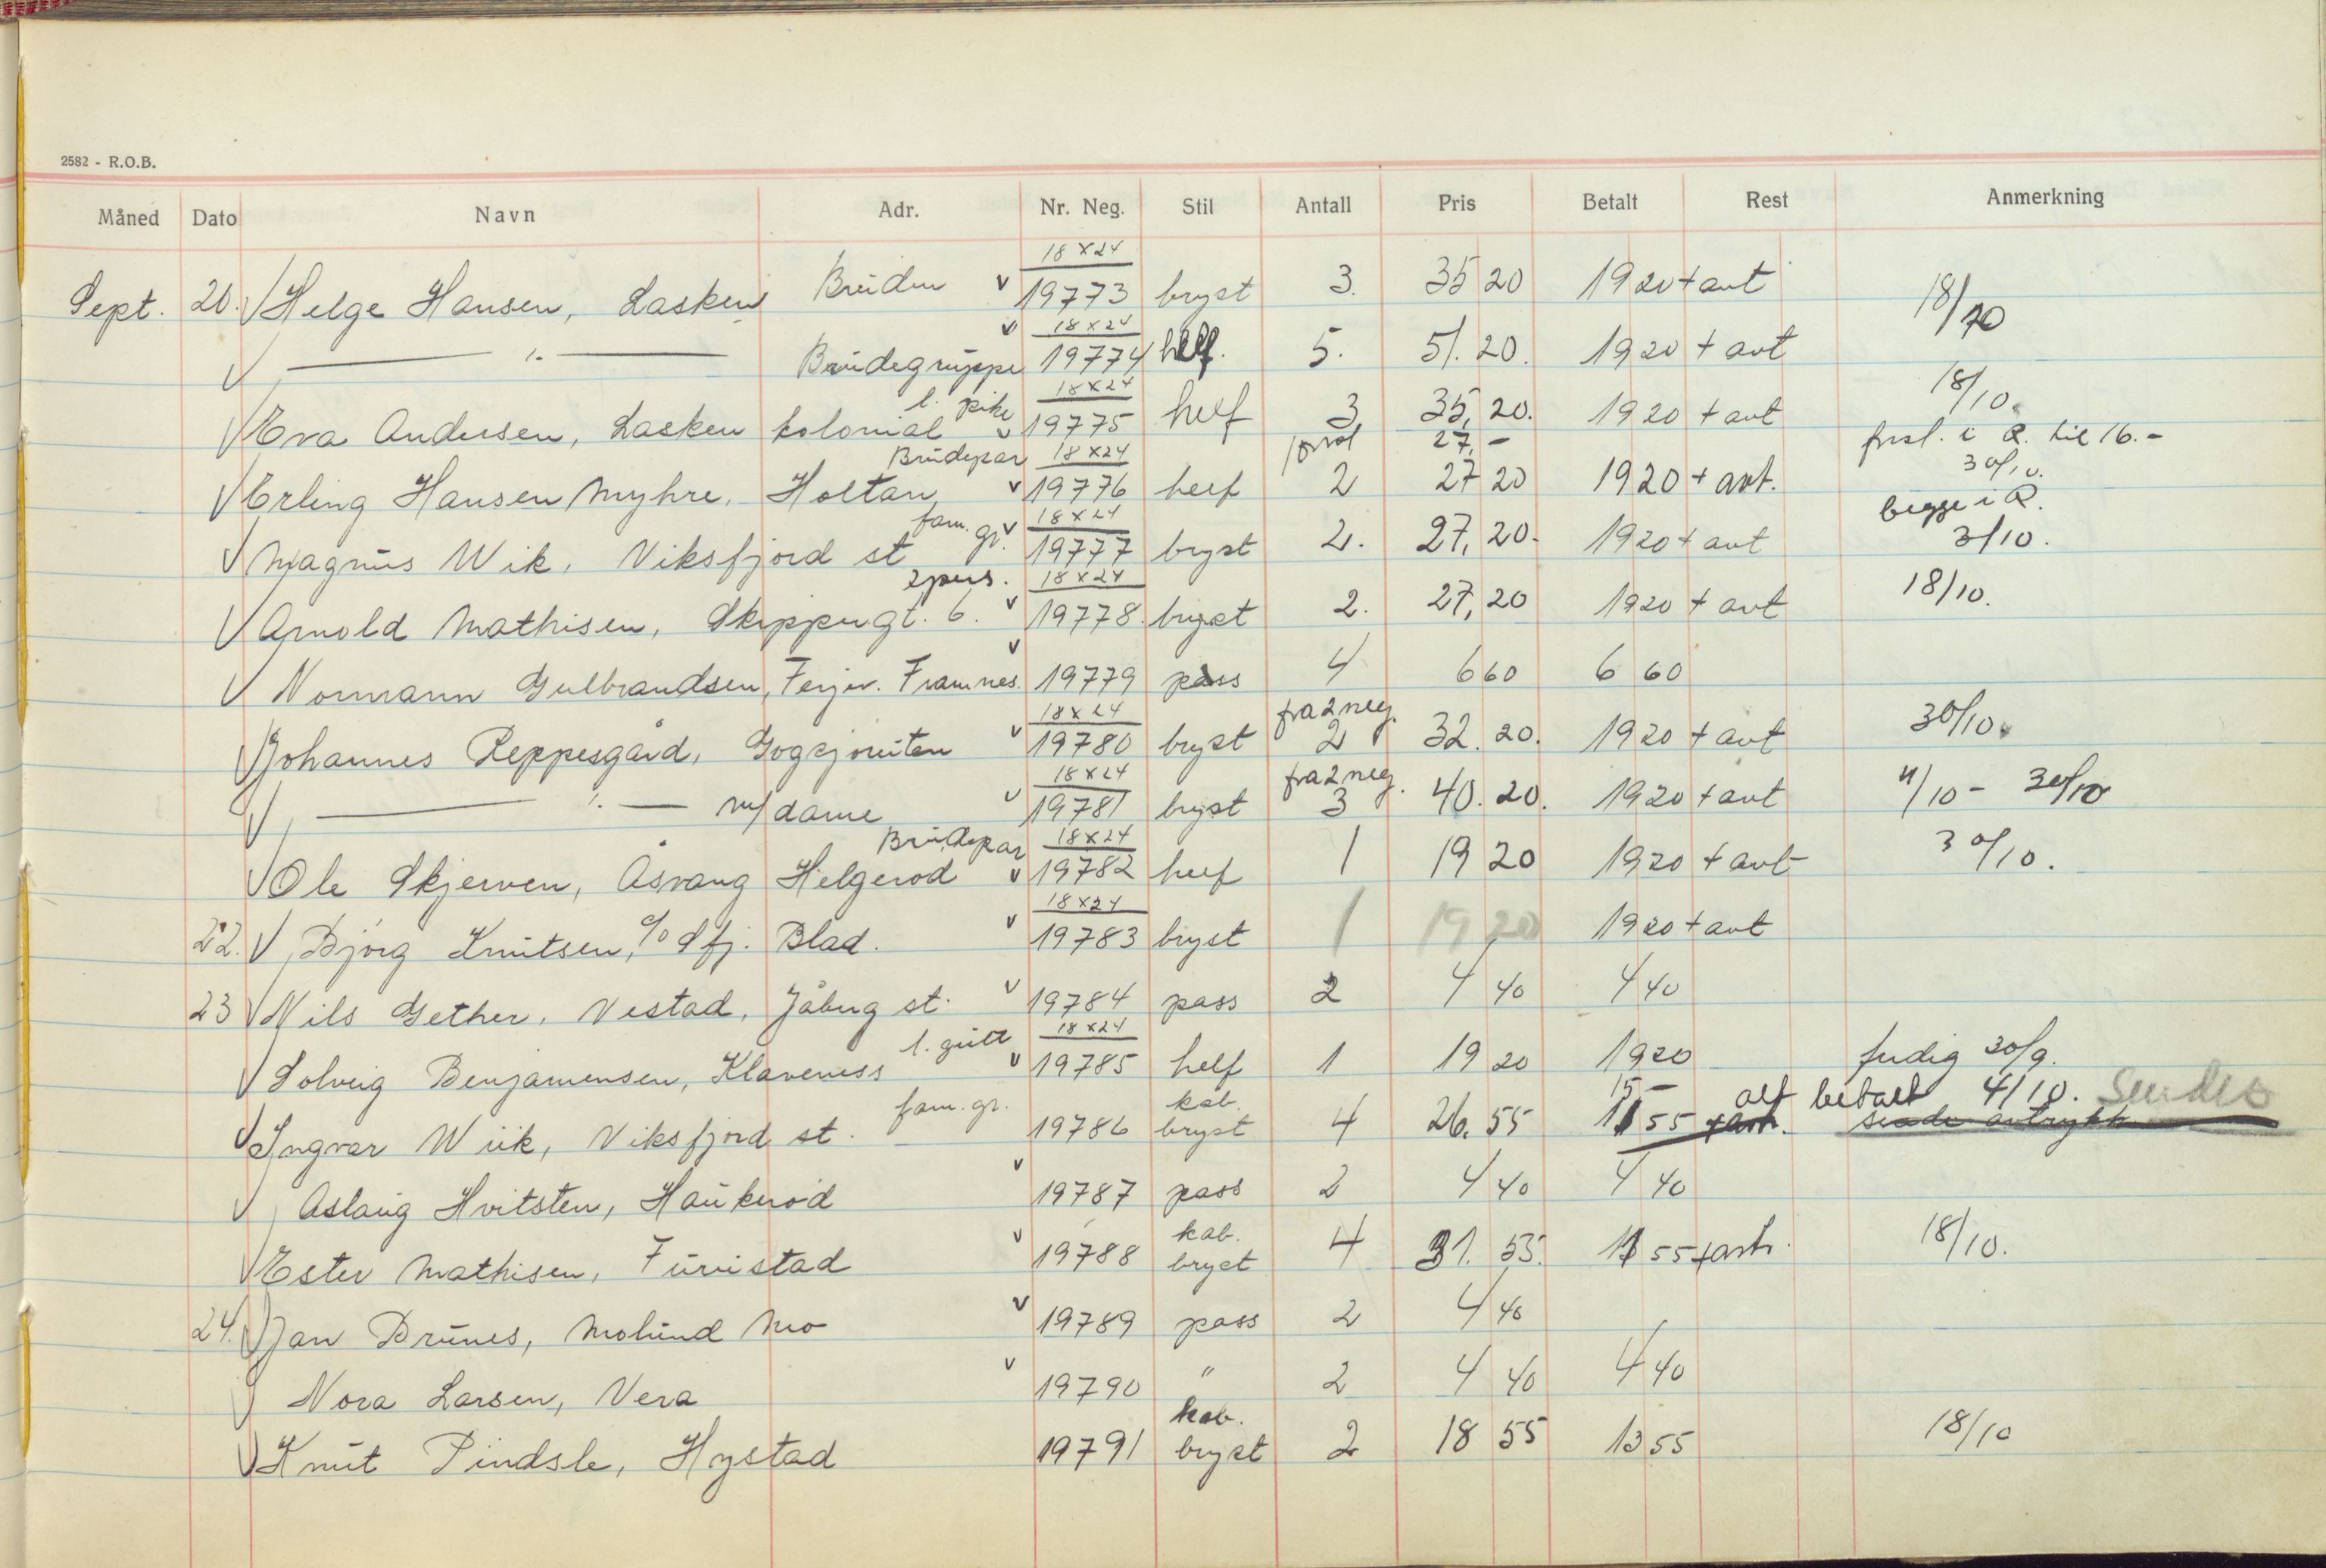 2582 - R.O.B.
Måned Dato Navn Adr. Nr. Neg. Stil Antall Pris Betalt Rest Anmerkning
18 x 24
Sept. 20. Helge Hansen, Lasken Bruden 19773 bryst 3. 35 20 19 20 + avt 18/10
18 x 24
Brudegruppe 19774 helf. 5. 51. 20. 19 20 + avt
l. pike 18 x 24 18/10.
Eva Andersen, Lasken kolonial 19775 helf 3 35, 20. 19 20 + avt
Brudepar 18 x 24 27,- til 16.-
Erling Hansen Myhre, Holtan 19776 helf 2 27 20 19 20 + avt. 30/10.
fam. gr. 18 x 24 begge i R.
Magnus Wik, Viksfjord st 19777 bryst 2. 27, 20. 19 20 + avt 3/10.
2 pers. 18 x 24
Arnold Mathisen, Skippergt. 6. 19778. bryst 2. 27, 20 19 20 + avt 18/10.
Normann Gulbrandsen, Ferjev. Framnes. 19779 pass 4 6 60 6 60
18 x 24 fra 2 neg.
Johannes Reppesgård, Gogsjoruten 19780 bryst 2 32. 20. 19 20 + avt 30/10.
18 x 24 fra 2 neg.
m/ dame 19781 bryst 3 40. 20. 19 20 + avt 4/10 - 30/10
Brudepar 18 x 24
Ole Skjerven, Åsvang Helgerod 19782 helf 1 19 20 19 20 + avt 30/10.
18 x 24
22. Bjørg Knutsen, c/o Sfj. Blad. 19783 bryst 1 19 20 19 20 + avt
23 Nils Gether, Vestad, Jåberg st. 19784 pass 2 4 40 4 40
l. gutt 18 x 24
Solveig Benjamensen, Klaveness 19785 helf 1 19 20 19 20 ferdig 30/9.
fam. gr. kab. 15 - alt betalt 4/10. Sendes
Ingvar Wiik, Viksfjord st. 19786 bryst 4 26. 55 11 55 + avtr. sende avtrykk
Aslaug Hvitsten, Haukerød 19787 pass 2 4 40 4 40
kab.
Ester Mathisen, Furustad 19788 bryst 4 31. 55. 11 55 + avtr. 18/10.
24. Jan Brunes, Molund Mo 19789 pass 2 4 40
Nora Larsen, Vera 19790 " 2 4 40 4 40
kab.
Knut Pindsle, Hystad 19791 bryst 2 18 55 13 55 18/10